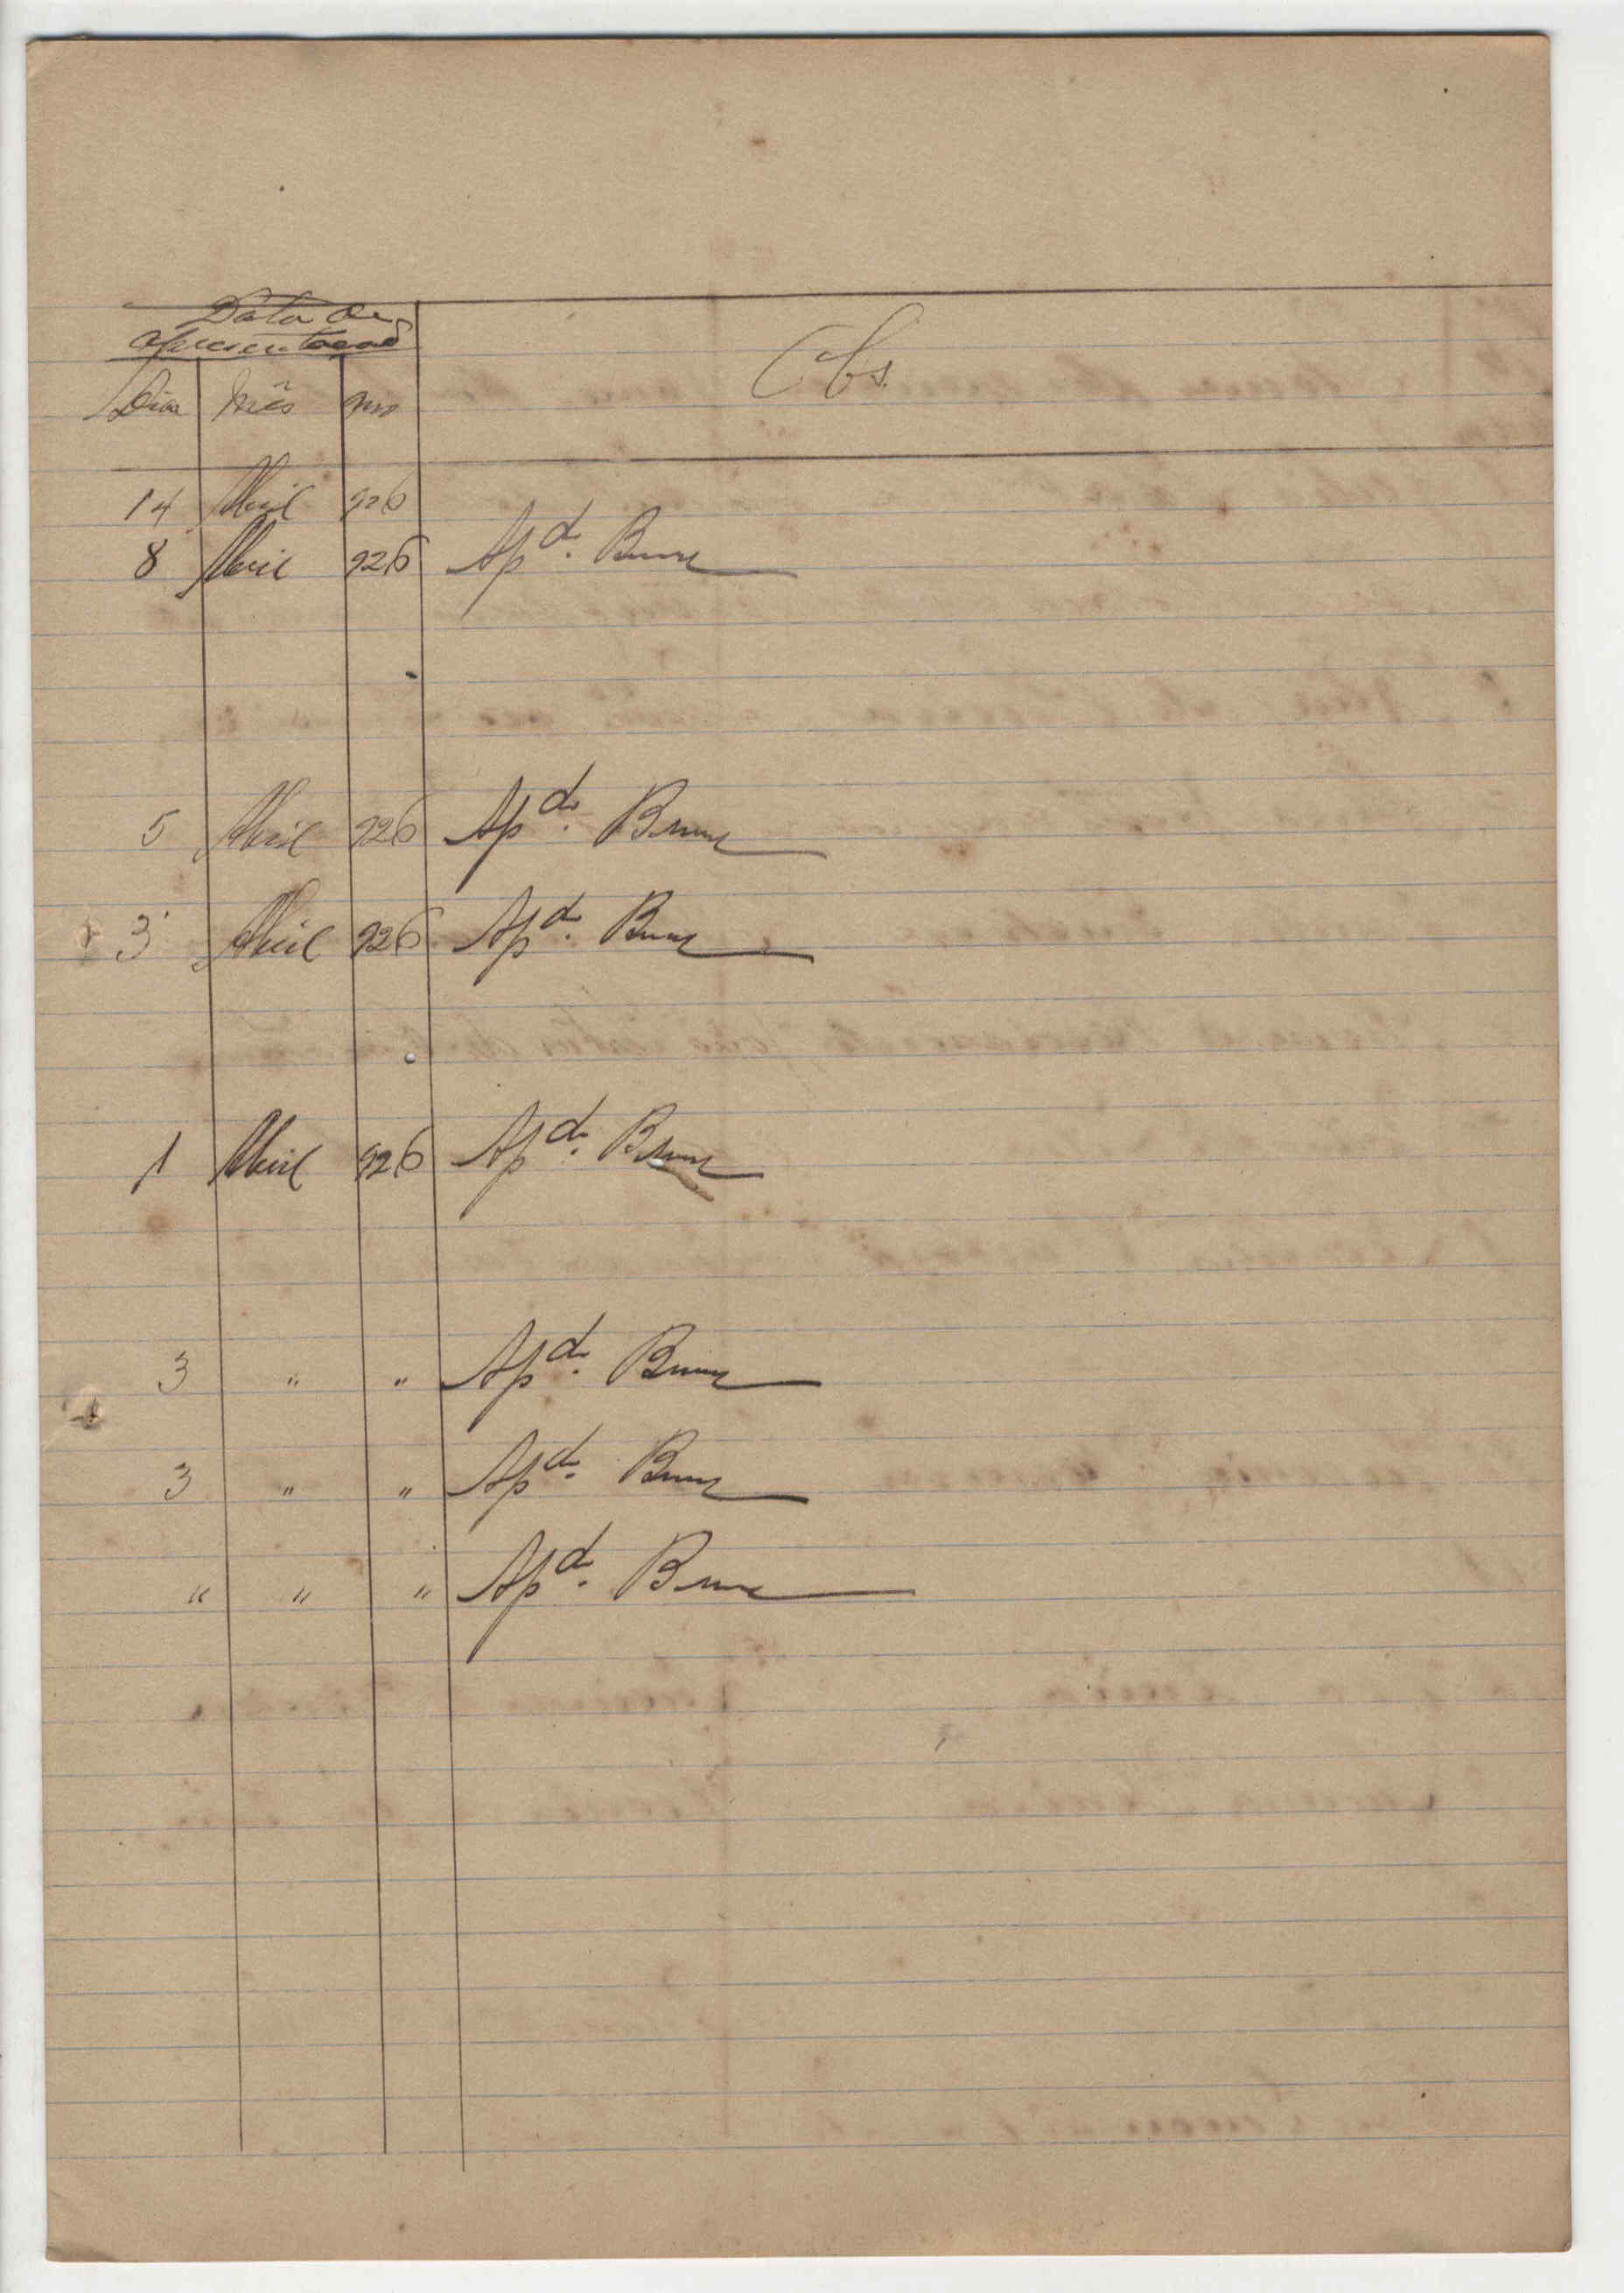 Data de
apresentação
Dia Mês Ano Obs.
14 Abril 926
8 Abril 926 Apdo. Bruno
5 Abril 926 Apdo. Bruno
3 Abril 926 Apdo. Bruno
1 Abril 926 Apdo. Bruno
3 " " Apdo. Bruno
3 " " Apdo. Bruno
" " " Apdo. Bruno